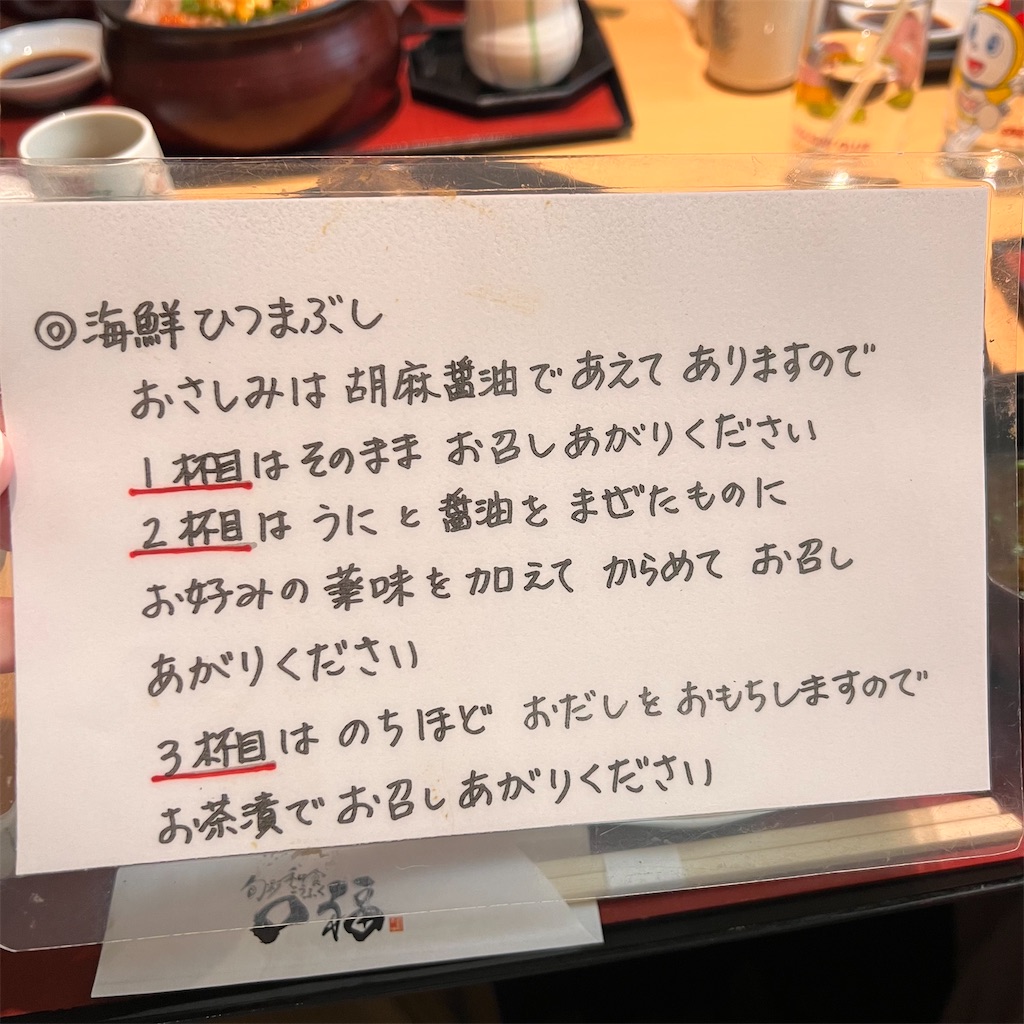 ◎海鮮ひつまぶし
おさしみは胡麻醤油であえてありますので
1杯目はそのままお召しあがりください
2杯目はうにと醤油をまぜたものに
お好みの薬味を加えてからめてお召し
あがりください
3杯目はのちほどおだしをおもちしますので
お茶漬でお召しあがりください
口福